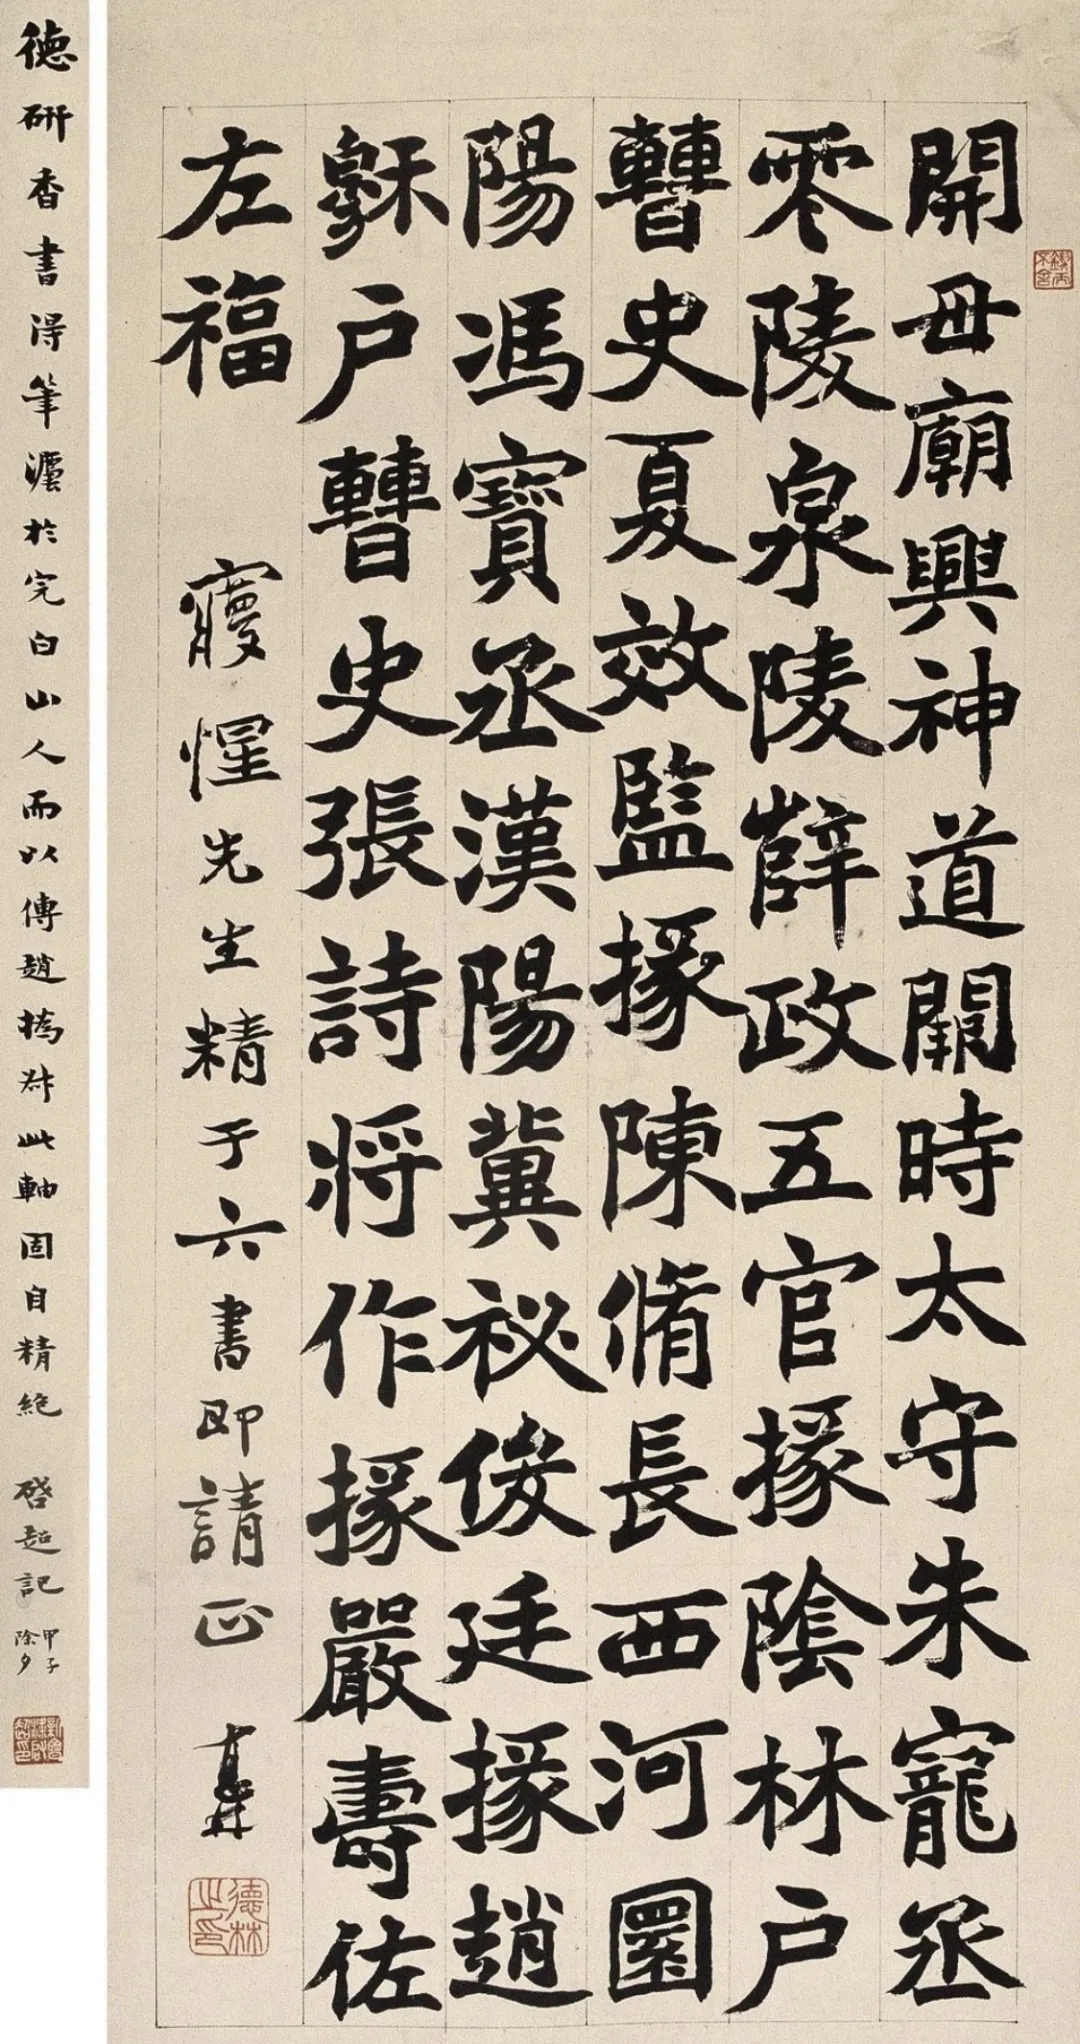 開母廟興神道闕時太守朱寵丞
零陵泉陵薛政五官掾陰林戶
曹史夏效監掾陳脩長西河圜
陽馮寶丞漢陽冀祕俊廷掾趙
穌戶曹史張詩將作掾嚴壽佐
左福
惺先生精于六書即請正
德林之印
德研香書得筆灋於完白山人而以傳趙撝叔此軸固自精絕 啓超記
甲子
除夕